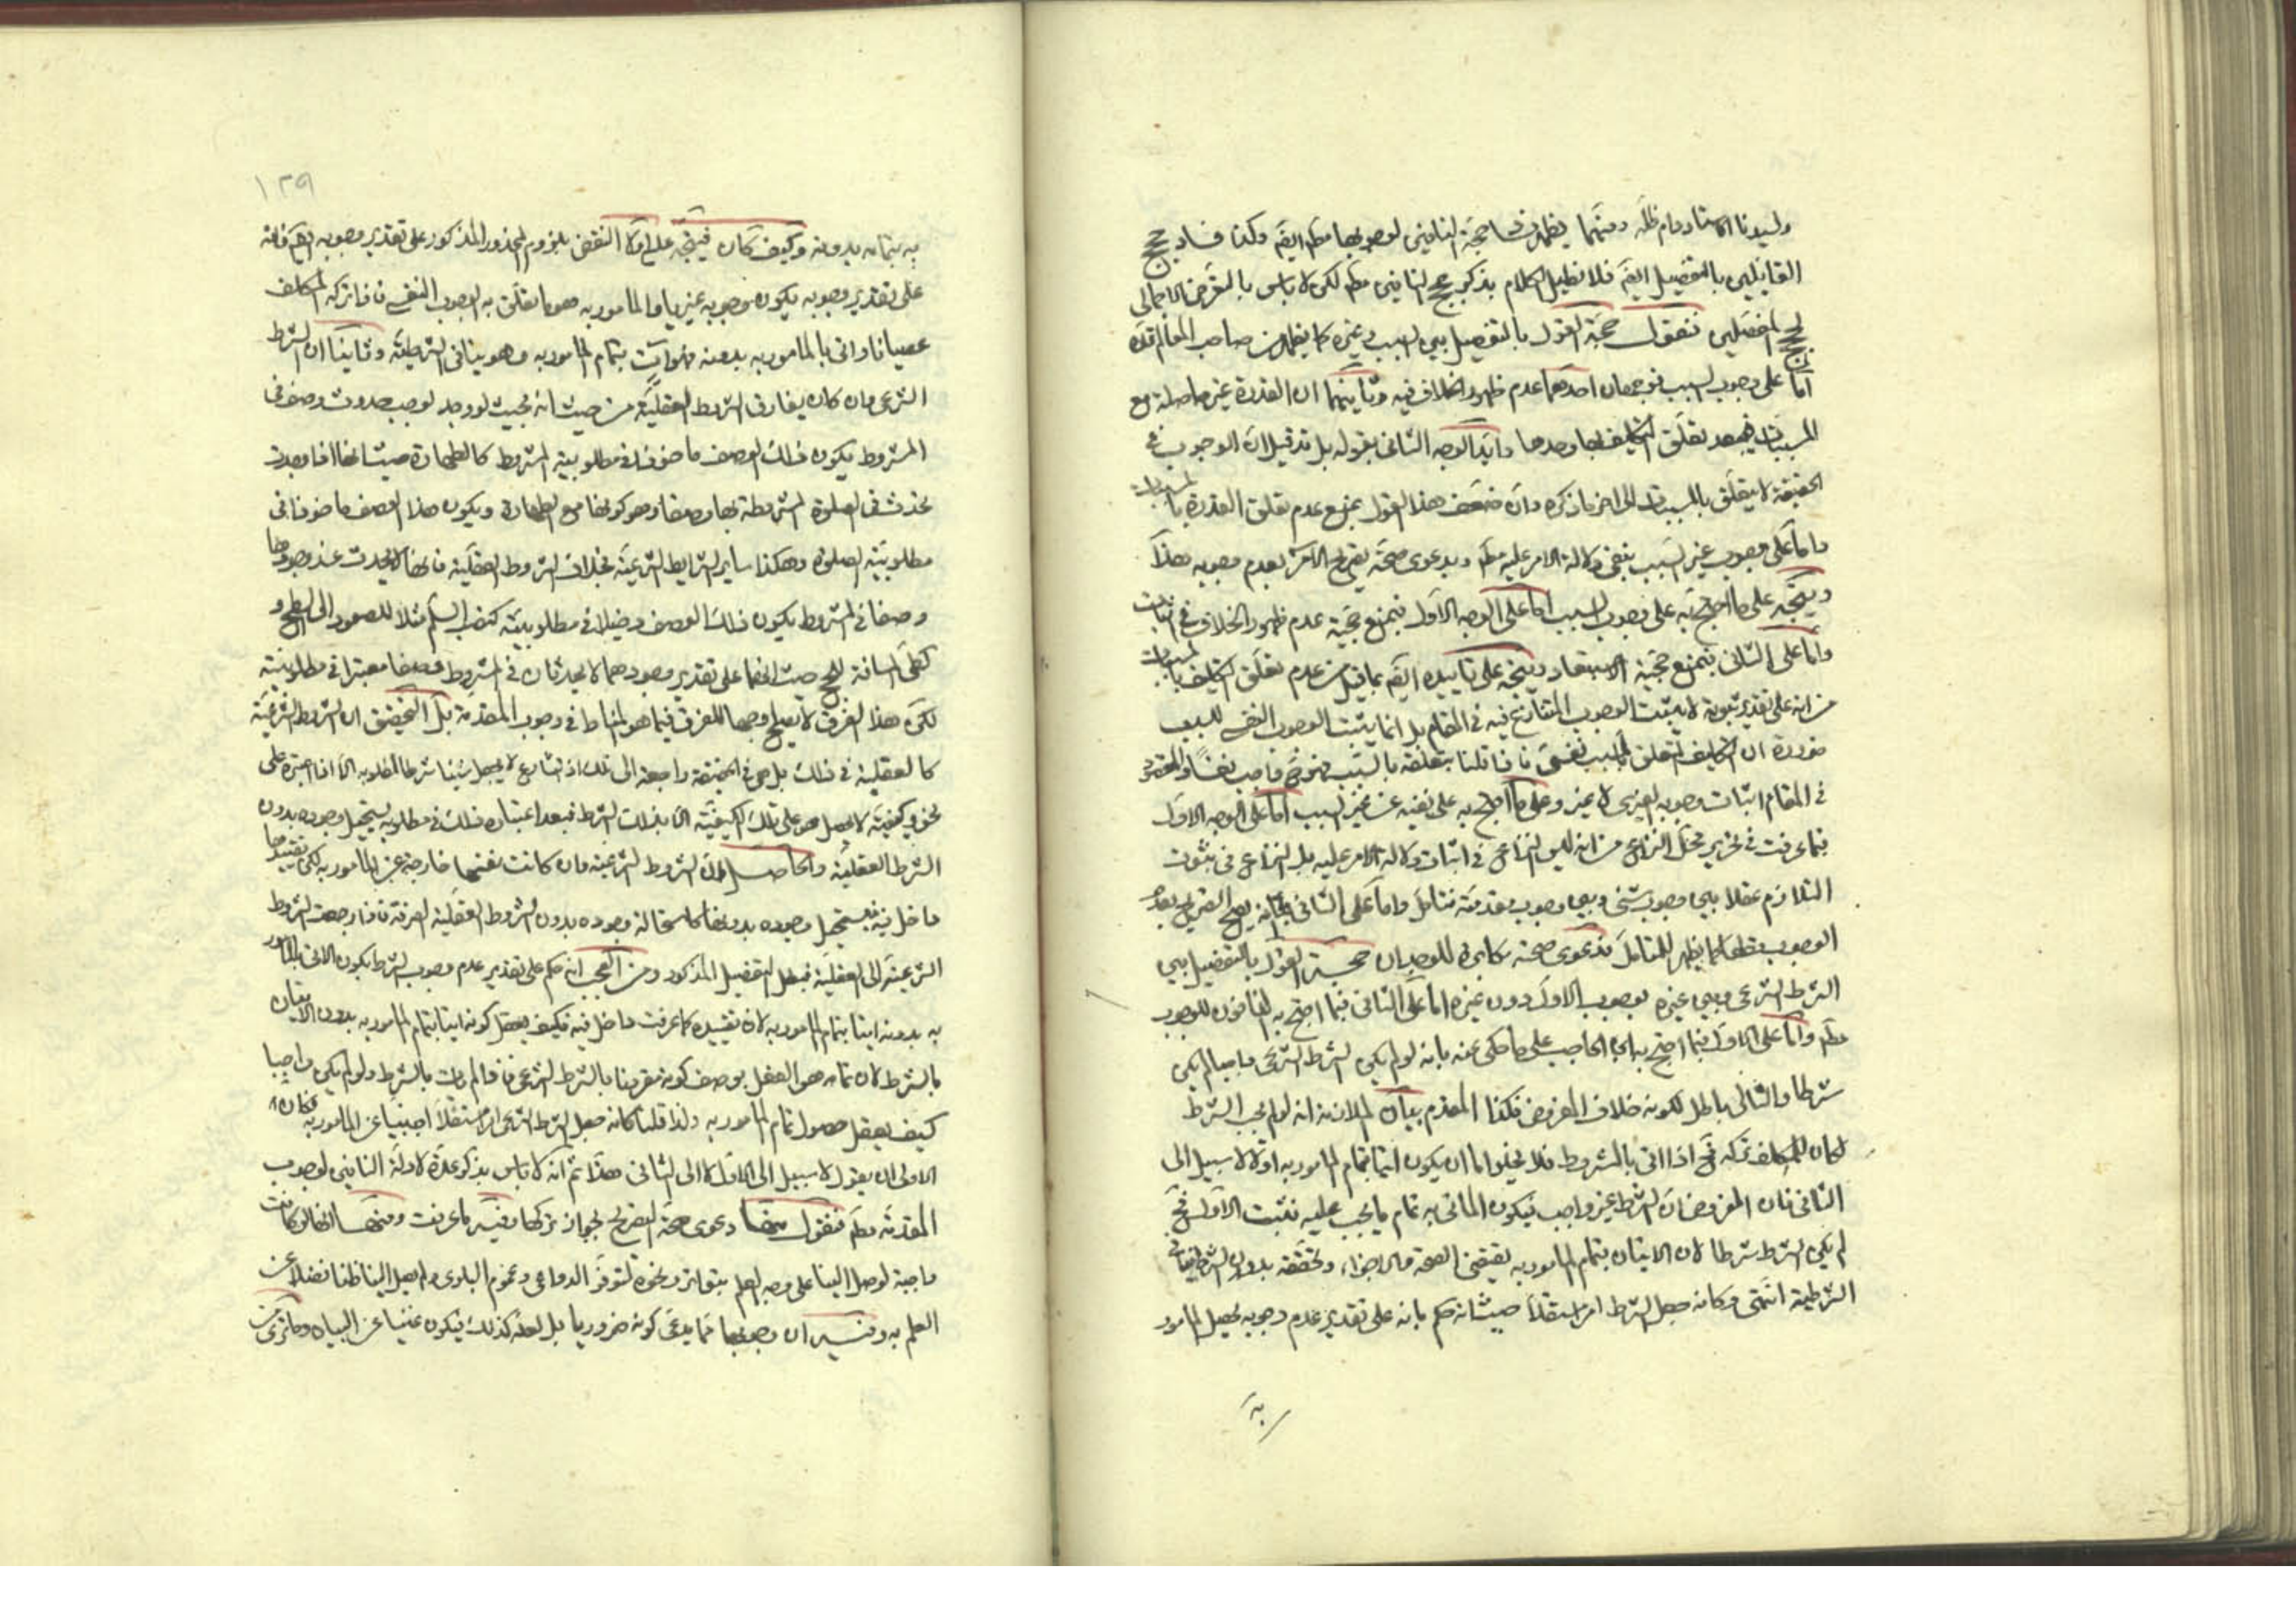 ولسيدنا الاستاد دام ظله ومنهما يظهر فساد حجة النافين لوجوبها مطم ايضم وكذا فساد حجج
القائلين بالتفصيل ايضم فلا نطيل الكلام بذكر حجج النافين مطم لكن لا باس بالتعرض الاجمالى
لحجج المفصلين فنقول حجة القول بالتفصيل بين السبب وغيره كما يظهر من صاحب المعالم قده
اما على وجوب السبب فوجهان احدهما عدم ظهور الخلاف فيه وثانيهما ان القدرة غير حاصلة مع
المسببات فيبعد تعلق التكليف بها وحدها وايد الوجه الثانى بقوله بل قد قيل ان الوجوب فى
الحقيقة لا يتعلق بالمسببات الى اخر ما ذكره وان ضعف هذا القول بمنع عدم تعلق القدرة بالمسببات
واما على وجوب غير السبب بنفى دلالة الامر عليه مطم وبدعوى صحة تصريح الامر بعدم وجوبه هذا
ويتجه على ما احتج به على وجوب السبب اما على الوجه الاول فبمنع حجية عدم ظهور الخلاف فى اثبات
واما على الثانى فبمنع حجية الاستبعاد ويتجه على تاييده ايضم بما قيل من عدم تعلق التكليف بالمسببات
من انه على تقدير ثبوته لا يثبت الوجوب المتنازع فيه فى المقام بل انما يثبت الوجوب النفسى للسبب
ضرورة ان التكليف المتعلق بالمسبب نفسى فاذا قلنا بتعلقه بالسبب فهو ح واجب نفسا والمقصود
فى المقام اثبات وجوبه الغيرى لا غير وعلى ما احتج به على نفيه عن غير السبب اما على الوجه الاول
فبما عرفت فى تحرير محل النزاع من انه ليس النزاع فى اثبات دلالة الامر عليه بل النزاع فى ثبوت
التلازم عقلا بين وجوب شئ وبين وجوب مقدمته فتامل واما على الثانى فبانه يقبح التصريح بعدم
الوجوب قطعا كما يظهر للمتامل فدعوى صحته مكابرة للوجدان حجة القول بالتفصيل بين
الشرط الشرعى وبين غيره بوجوب الاول دون غيره اما على الثانى فبما احتج به النافون للوجوب
مطم واما على الاول فبما احتج به ابن الحاجب على ما حكى عنه بانه لو لم يكن الشرط الشرعى واجبا لم يكن
شرطا والتالى باطل لكونه خلاف المفروض فكذا المقدم بيان الملازمة انه لو لم يجب الشرط
لكان للمكلف تركه فح اذا اتى بالمشروط فلا يخلوا اما ان يكون اتيا بتمام المامور به اولا لا سبيل الى
الثانى فان المفروض ان الشرط غير واجب فيكون الماتى به تمام ما يجب عليه فثبت الاول فح
لم يكن الشرط شرطا لان الاتيان بتمام المامور به يقتضى الصحة والاجزاء وتحققه بدون الشرط ينافى
الشرطية انتهى وكانه جعل الشرط امرا مستقلا حيث انه حكم بانه على تقدير عدم وجوبه يحصل المامور
به
١٢٩
به بتمامه بدونه وكيف كان فيتجه عليه اولا النقض بلزوم المحذور المذكور على تقدير وجوبه ايضم فانه
على تقدير وجوبه يكون وجوبه غيريا والمامور به هو ما تعلق به الوجوب النفسى فاذا تركه المكلف
عصيانا واتى بالمامور به بدونه فهو ات بتمام المامور به وهو ينافى الشرطية وثانيا ان الشرط
الشرعى وان كان يفارق الشروط العقلية من حيث انه بحيث لو وجد لوجب حدوث وصف فى
المشروط يكون ذلك الوصف ماخوذا فى مطلوبية المشروط كالطهارة حيث انها اذا وجدت
يحدث فى الصلوة المشروطة بها وصفا وهو كونها مع الطهارة ويكون هذا الوصف ماخوذا فى
مطلوبية الصلوة وهكذا ساير الشرايط الشرعية بخلاف الشروط العقلية فانها لا يحدث عند وجودها
وصفا فى المشروط يكون ذلك الوصف دخيلا فى مطلوبيته كنصب السلم مثلا للصعود الى السطح و
كطى المسافة للحج حيث انهما على تقدير وجودهما لا يحدثان فى المشروط وصفا معتبرا فى مطلوبيته
لكن هذا الفرق لا يصلح وجها للفرق فيما هو المناط فى وجوب المقدمة بل التحقيق ان الشروط الشرعية
كالعقلية فى ذلك بل هى فى الحقيقة راجعة الى تلك اذ الشارع لا يجعل شيئا شرطا لمطلوبه الا اذا اعتبره على
نحو وكيفية لا يحصل هو على تلك الكيفية الا بذلك الشرط فبعد اعتباره ذلك فى مطلوبه يستحيل وجوده بدون
الشرط العقلية والحاصل ان الشروط الشرعية وان كانت بنفسها خارجة عن المامور به لكن تقييدها
داخل فيه فيستحيل وجوده بدونها كاستحالة وجوده بدون الشروط العقلية الصرفة فاذا رجعت الشروط
الشرعية الى العقلية فبطل التفصيل المذكور ومن العجب انه حكم على تقدير عدم وجوب الشرط بكون الاتى بالمامور
به بدونه اتيا بتمام المامور به لان تقييده كما عرفت داخل فيه فكيف يعقل كونه اتيا بتمام المامور به بدون الاتيان
بالشرط لان تمامه هو الفعل بوصف كونه مقرونا بالشرط الشرعى فاذا لم يات بالشرط ولو لم يكن واجبا
كيف يعقل حصول تمام المامور به ولذا قلنا كانه جعل الشرط الشرعى امرا مستقلا اجنبيا عن المامور به فكان
الاولى ان يقول لا سبيل الى الاول لا الى الثانى هذا ثم انه لا باس بذكر عدة لادلة النافين لوجوب
المقدمة مطم فنقول منها دعوى صحة التصريح بجواز تركها وفيه ما عرفت ومنها انها لو كانت
واجبة لوصل الينا على وجه العلم بتواتر ونحوه لتوفر الدواعى وعموم البلوى ولم يصل الينا ظنا فضلا عن
العلم به وفيه ان وجوبها مما يدعى كونه ضروريا بل لعله كذلك فيكون غنيا عن البيان وما ترى من